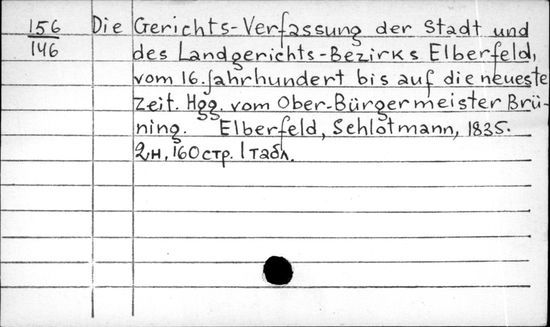 156 Die Gerichts-Verfassung der Stadt und
146 des Landgerichts-Bezirks Elberfeld,
vom 16. Jahrhundert bis auf die neueste
Zeit. Hgg. vom Ober-Bürgermeister Brü-
ning. Elberfeld, Schlotmann, 1835.
2н, 160 стр. 1 табл.